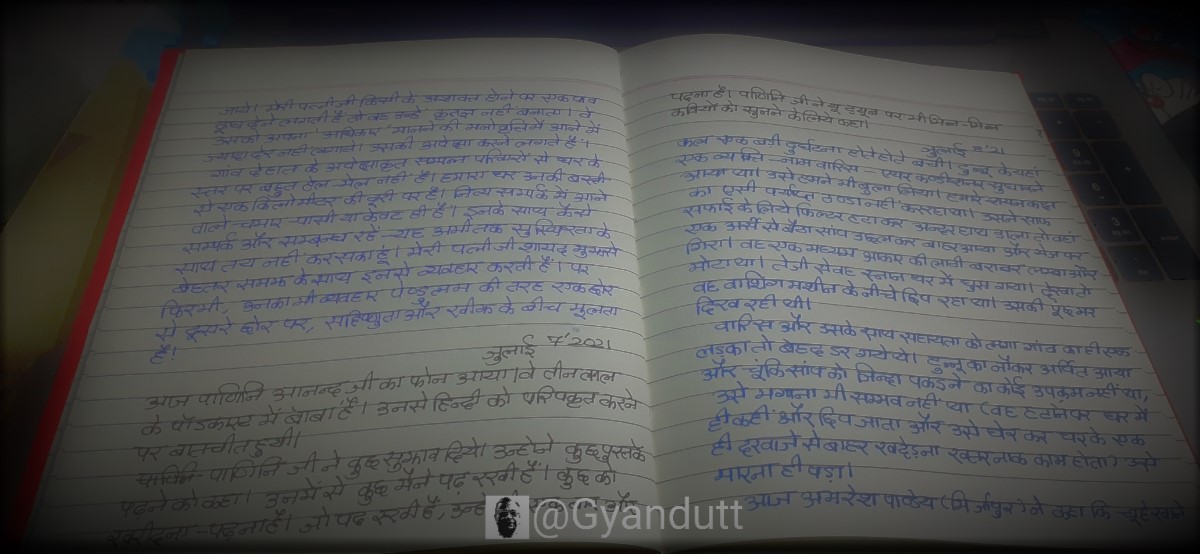 जाये। मेरी पत्नीजी किसी के अशक्त होने पर एक पाव
दूध देने लगती हैं तो वह उन्हें कृतज्ञ नहीं बनाता। वे
उसको अपना 'अधिकार' मानने की मनोवृत्ति में आने में
ज्यादा देर नहीं लगाते। उसकी अपेक्षा करने लगते हैं।
गांव देहात के अपेक्षाकृत सम्पन्न परिवारों से घर के
स्तर पर बहुत हेल मेल नहीं है। हमारा घर उनकी बस्ती
से एक किलोमीटर की दूरी पर है। नित्य सम्पर्क में आने
वाले चमार-पासी या केवट ही हैं। इनके साथ कैसे
सम्पर्क और सम्बन्ध रहें – यह अभी तक सुनिश्चितता के
साथ तय नहीं कर सका हूं। मेरी पत्नीजी शायद मुझसे
बेहतर समझ के साथ इनसे व्यवहार करती हैं। पर
फिरभी, उनका भी व्यवहार पेण्डुलम की तरह एक छोर
से दूसरे छोर पर, सहिष्णुता और खीज के बीच झूलता
है।
जुलाई 7'2021
आज पाणिनि आनन्द जी का फोन आया। वे तीन ताल
के पॉडकास्ट में बाबा हैं। उनसे हिन्दी को परिष्कृत करने
पर बातचीत हुयी।
पाणिनि जी ने कुछ सुझाव दिये। उन्होने कुछ पुस्तकें
पढ़ने को कहा। उनमें से कुछ मैने पढ़ रखी हैं। कुछ को
खरीदना-पढ़ना है। जो पढ़ रखी हैं, उन्हे और
पढ़ना है। पाणिनि जी ने यू ट्यूब पर भी भिन्न-भिन्न
कवियों को सुनने के लिये कहा।
जुलाई 8'21
कल एक बड़ी दुर्घटना होते होते बची। टुन्नू के यहां
एक व्यक्ति – नाम वारिस – एयर कण्डीशनर सुधारने
आया था। उसे हमने भी बुला लिया। हमारे शयनकक्ष
का एसी पर्याप्त ठण्डा नहीं कर रहा था। उसने साफ
सफाई के लिये फिल्टर हटा कर अन्दर हाथ डाला तो वहां
एक अर्से से बैठा सांप उछल कर बाहर आया और मेज पर
गिरा। वह एक मध्यम आकार की लाठी बराबर लम्बा और
मोटा था। तेजी से वह स्नान घर में घुस गया। देखा तो
वह वाशिंग मशीन के नीचे छिप रहा था। उसकी पूंछ भर
दिख रही थी।
वारिस और उसके साथ सहायता को लगा गांव का ही एक
लड़का तो बेहद डर गये थे। टुन्नू का नौकर अर्पित आया
और चूंकि सांप को जिन्दा पकड़ने का कोई उपक्रम नहीं था,
उसे भगाना भी सम्भव नहीं था (वह हटाने पर घर में
ही कहीं और छिप जाता और उसे घेर कर घर के एक
ही दरवाजे से बाहर खदेड़ना खतरनाक काम होता) उसे
मारना ही पड़ा।
आज अमरेश पाण्डेय (मिर्जापुर) ने कहा कि चूहे खाने
@Gyandutt